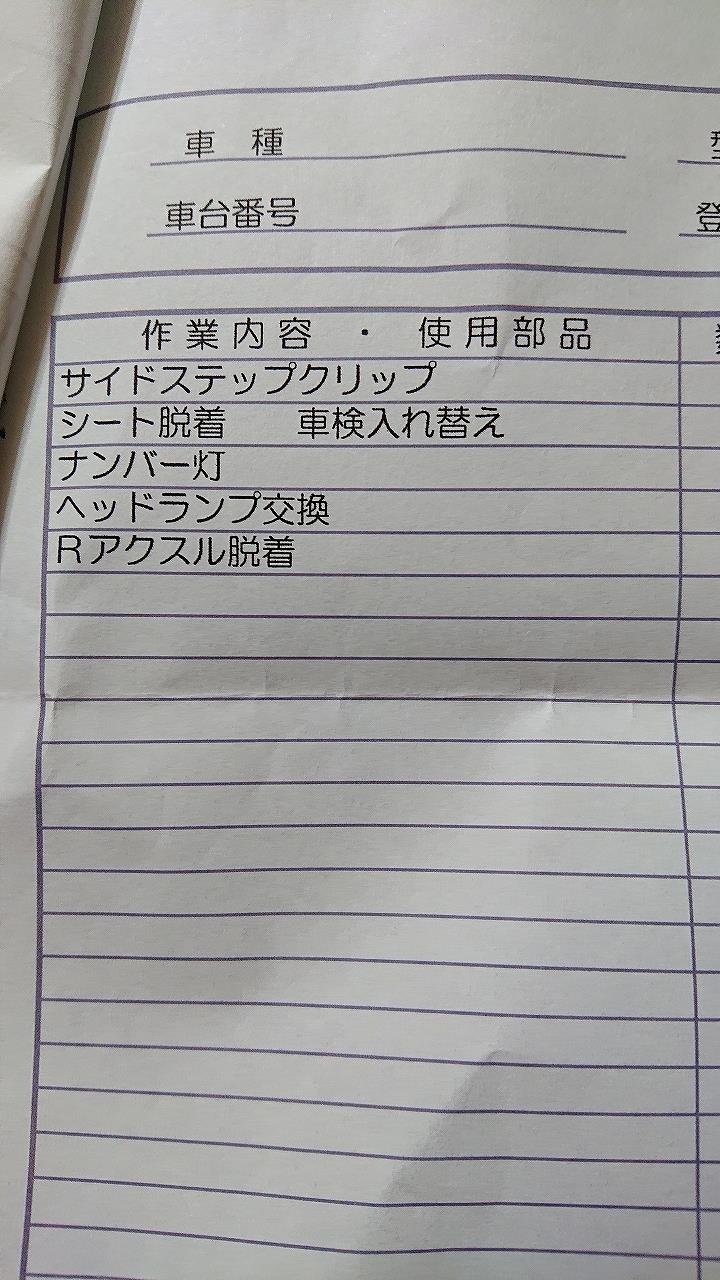 車 種
車台番号
登
作業内容 ・ 使用部品
サイドステップクリップ
シート脱着　　車検入れ替え
ナンバー灯
ヘッドランプ交換
Rアクスル脱着